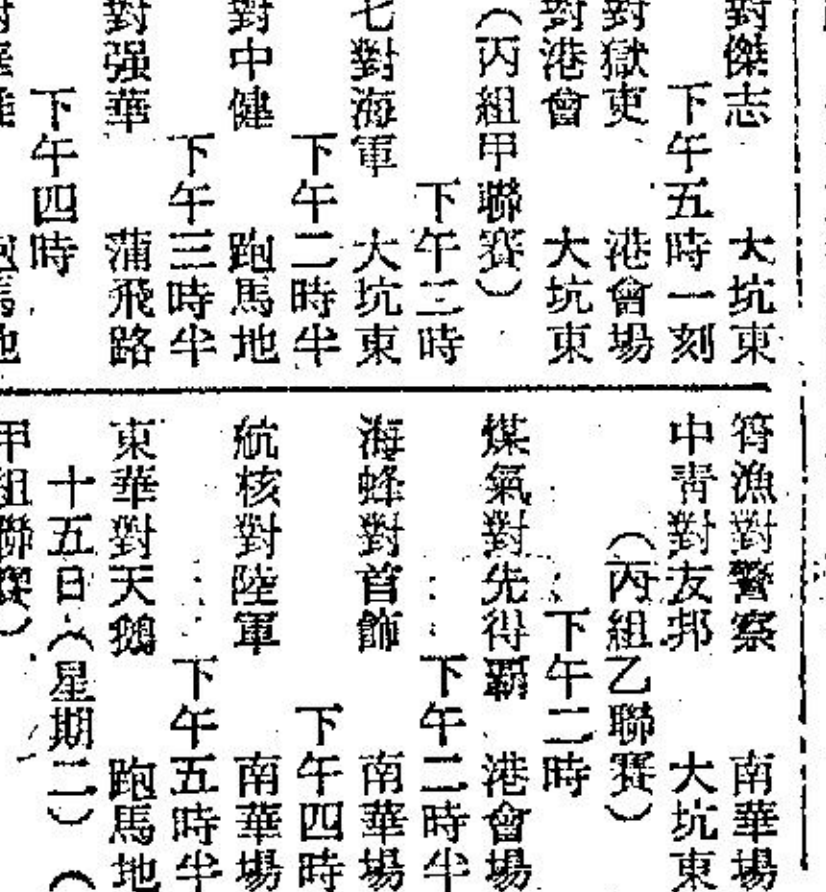 對傑志 大坑東
下午五時一刻
對獄吏 港會場
對港會 大坑東
（丙組甲聯賽）
下午三時
七對海軍 大坑東
下午二時半
對中健 跑馬地
下午三時半
對强華 蒲飛路
下午四時
跑馬地
筲漁對警察 南華場
中青對友邦 大坑東
（丙組乙聯賽）
下午二時
煤氣對先得霸 港會場
下午二時半
海蜂對首飾 南華場
下午四時
航核對陸軍 南華場
下午五時半
東華對天鵝 跑馬地
十五日（星期二）（
甲組聯賽）